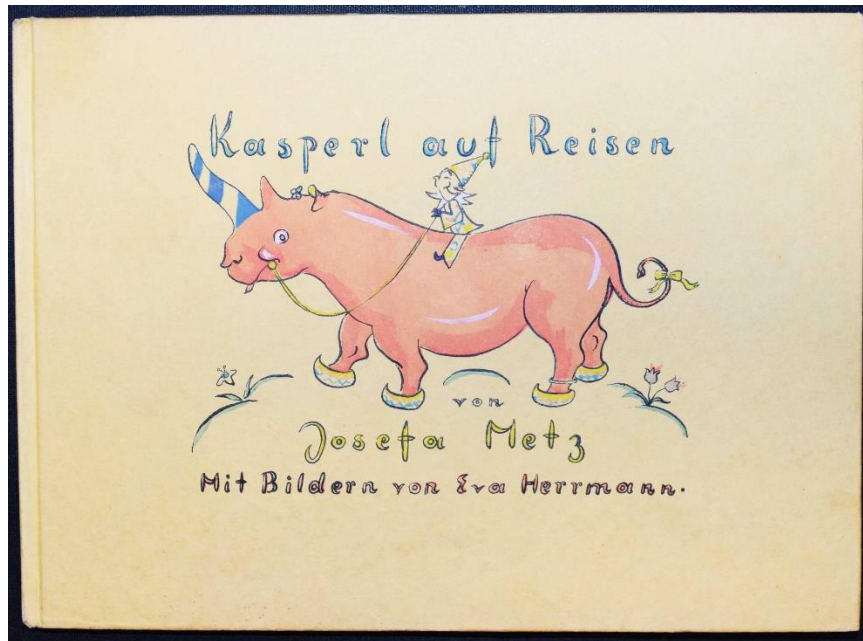 Kasperl auf Reisen
von
Josefa Metz
Mit Bildern von Eva Herrmann.